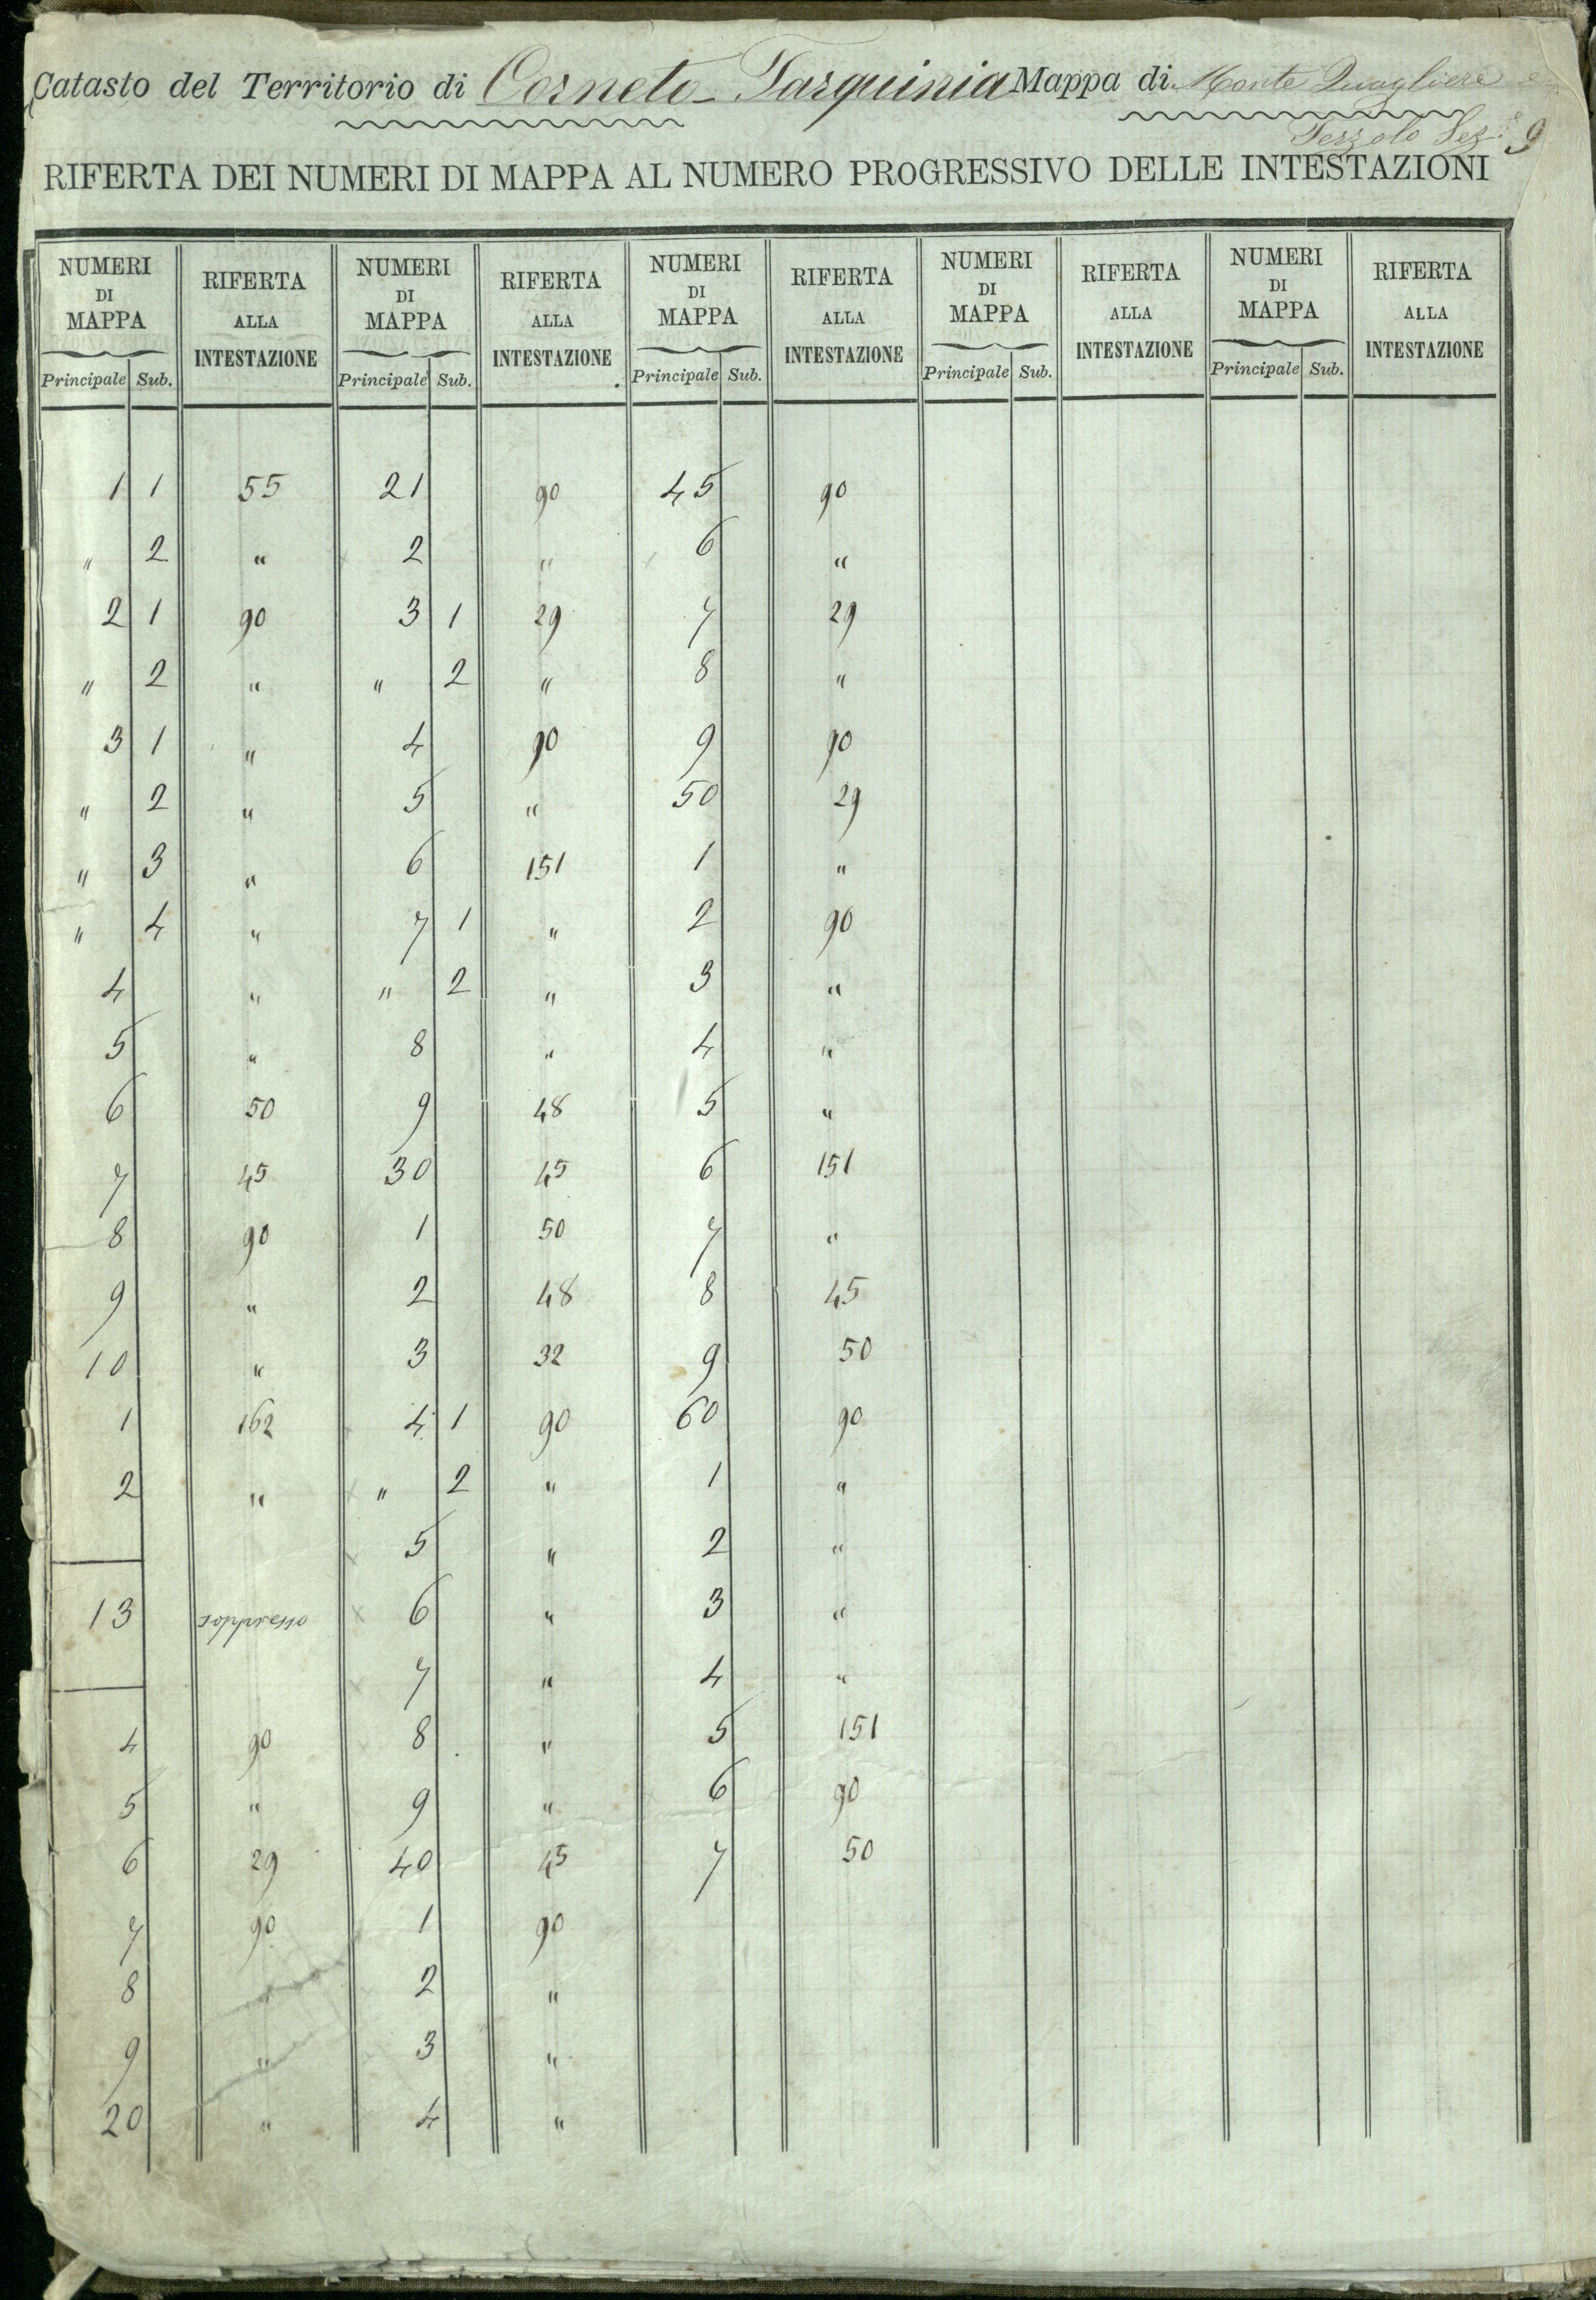 Catasto del Territorio di Corneto-Tarquinia Mappa di Monte Quagliere e
Terzolo Sez.e 9
RIFERTA DEI NUMERI DI MAPPA AL NUMERO PROGRESSIVO DELLE INTESTAZIONI
NUMERI DI MAPPA RIFERTA ALLA INTESTAZIONE NUMERI DI MAPPA RIFERTA ALLA INTESTAZIONE NUMERI DI MAPPA RIFERTA ALLA INTESTAZIONE NUMERI DI MAPPA RIFERTA ALLA INTESTAZIONE NUMERI DI MAPPA RIFERTA ALLA INTESTAZIONE
Principale Sub. Principale Sub. Principale Sub. Principale Sub. Principale Sub.
1 1 55 21 90 45 90
" 2 " 2 " 6 "
2 1 90 3 1 29 7 29
" 2 " " 2 " 8 "
3 1 " 4 90 9 90
" 2 " 5 " 50 29
" 3 " 6 151 1 "
" 4 " 7 1 " 2 90
4 " " 2 " 3 "
5 " 8 " 4 "
6 50 9 48 5 "
7 45 30 45 6 151
8 90 1 50 7 "
9 " 2 48 8 45
10 " 3 32 9 50
1 162 4 1 90 60 90
2 " " 2 " 1 "
5 " 2 "
13 soppresso 6 " 3 "
7 " 4 "
4 90 8 " 5 151
5 " 9 " 6 90
6 29 40 45 7 50
7 90 1 90
8 " 2 "
9 " 3 "
20 " 4 "